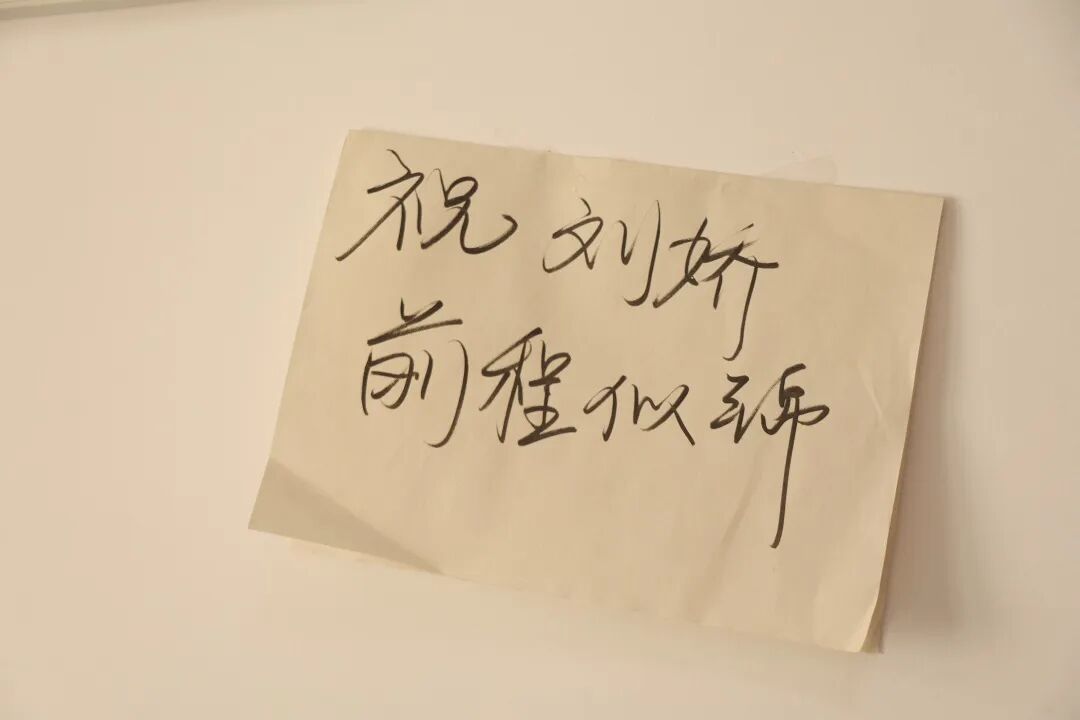 祝刘娇
前程似锦